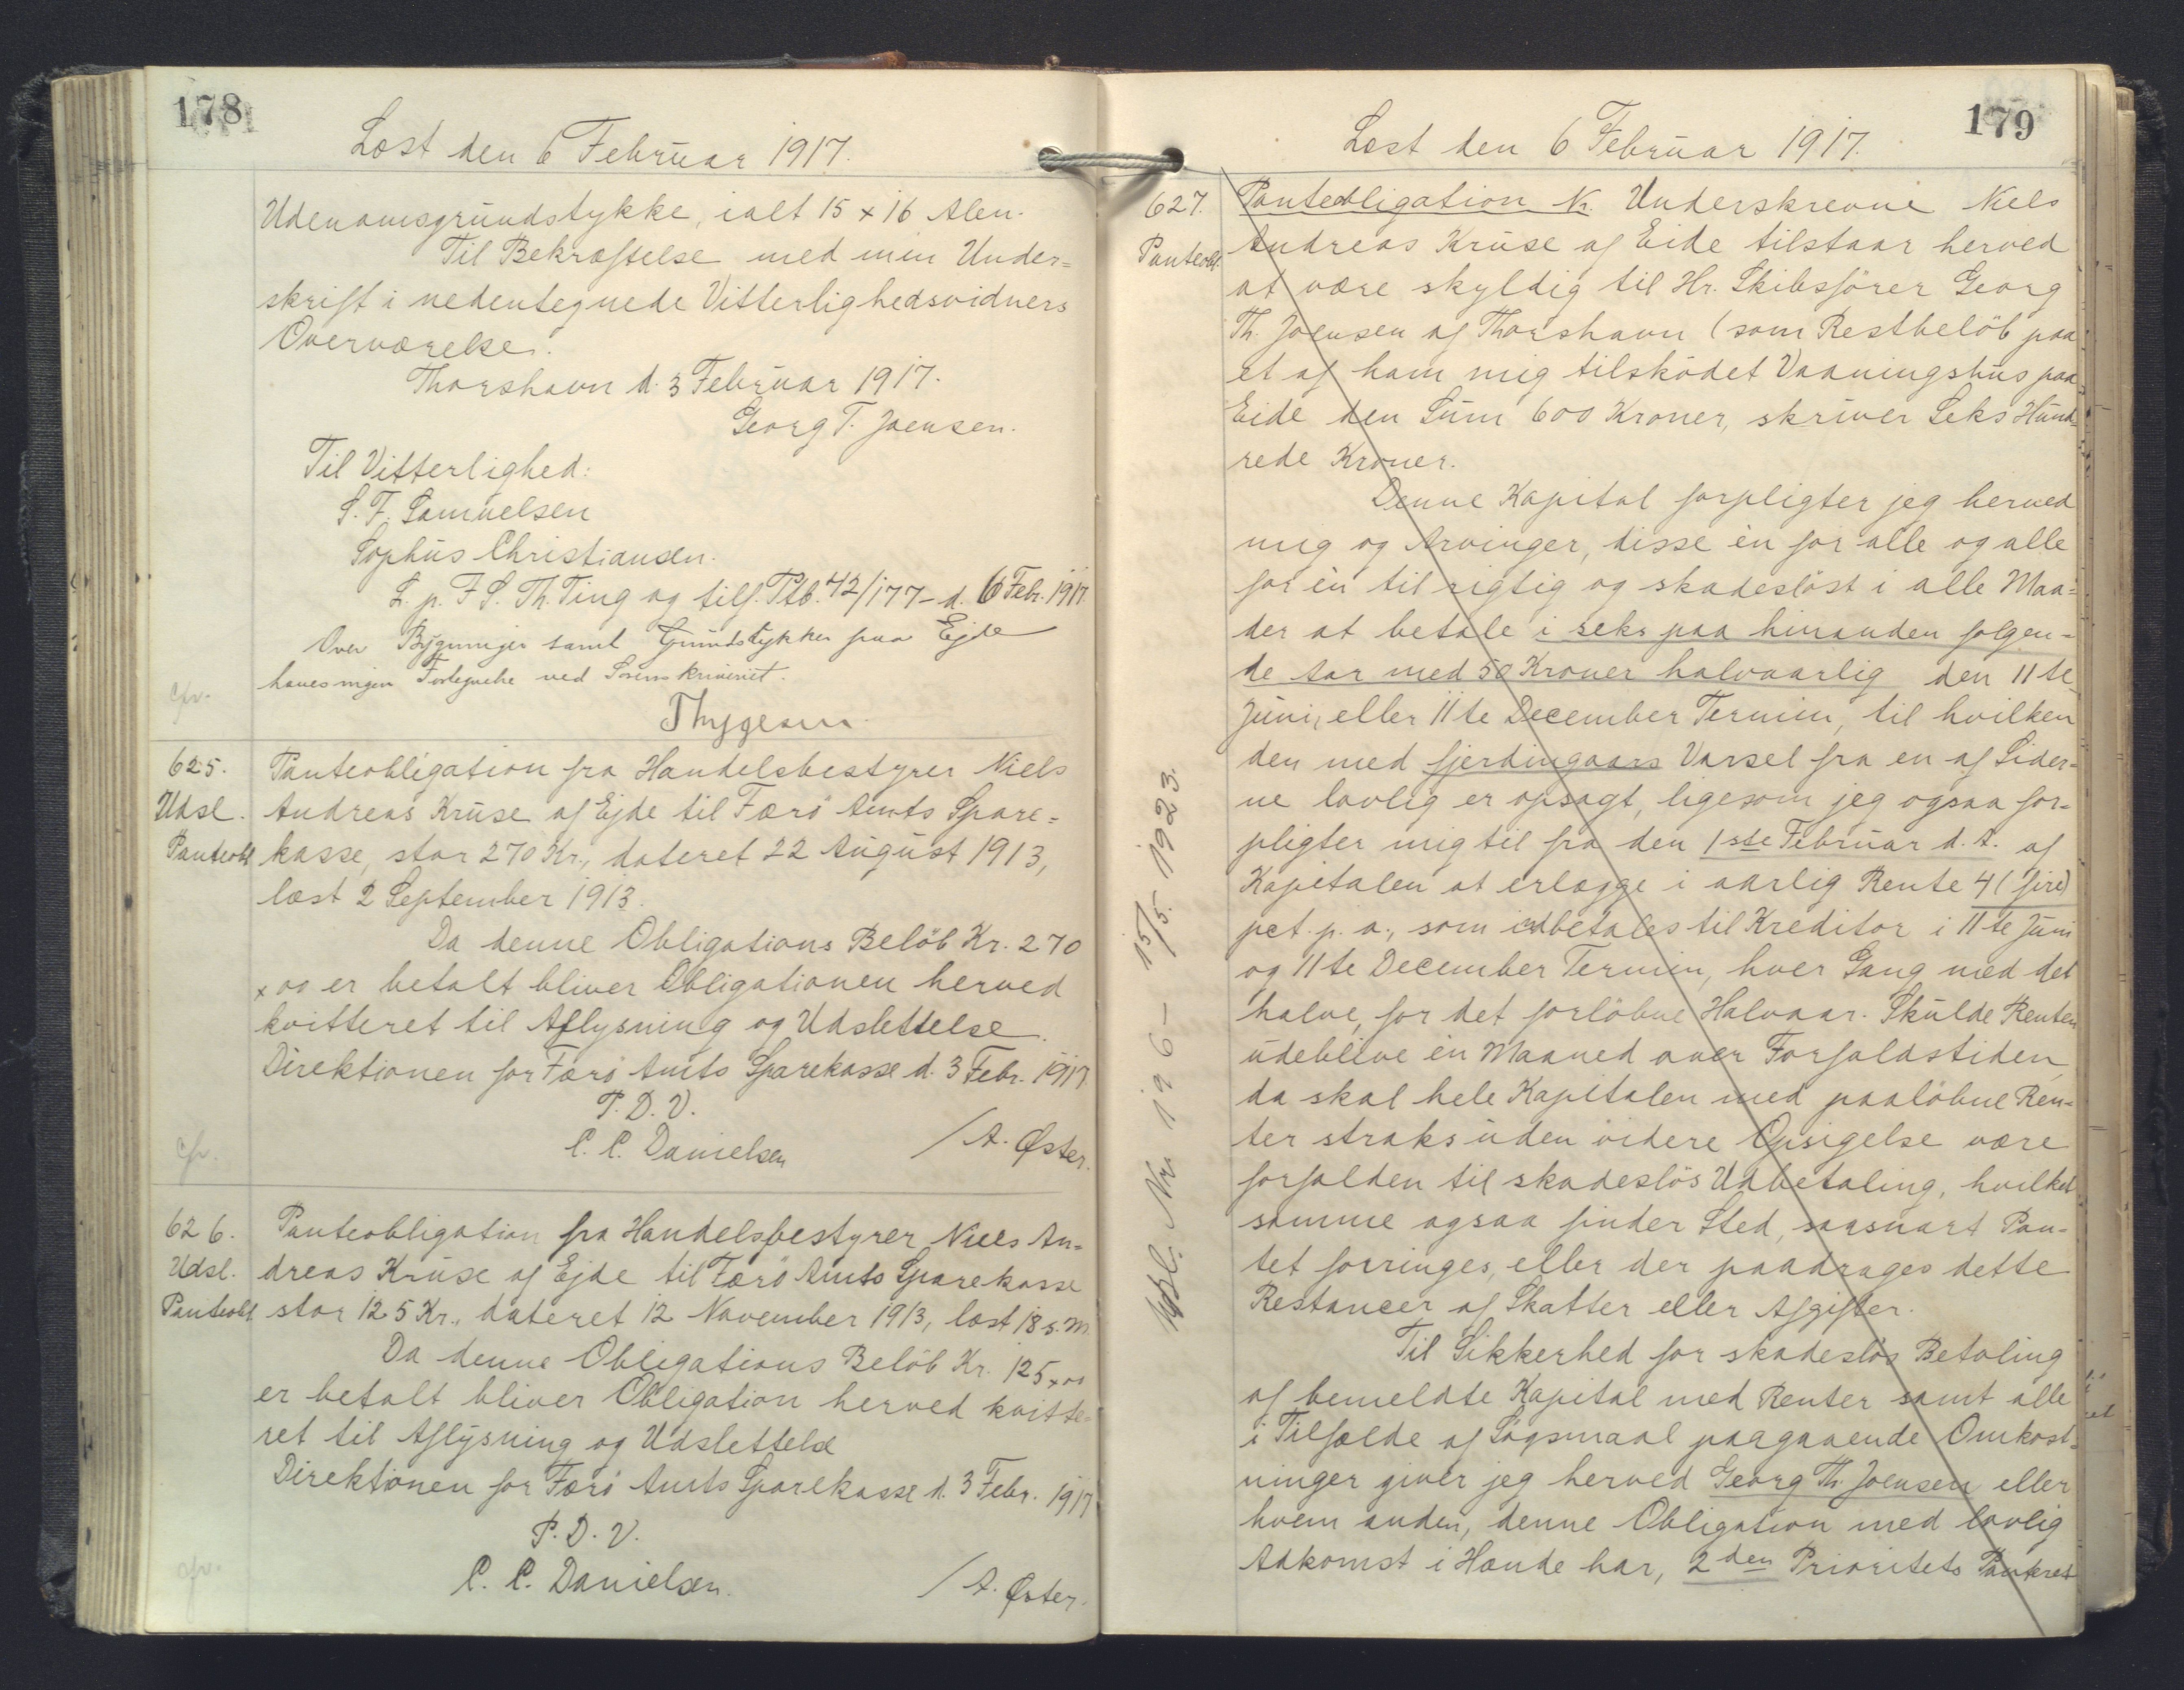 178
Læst den 6 Februar 1917.
Udenomsgrundstykke, ialt 15 x 16 Alen.
Til Bekræftelse med min Under=
skrift i nedentegnede Vitterlighedsvidners
Overværelse.
Thorshavn d. 3 Februar 1917.
Georg T. Joensen.
Til Vitterlighed:
S. F. Samuelsen
Sophus Christiansen.
L. p. F S. Th. Ting og tilf. Ptb. 42/177 - d. 6 Febr. 1917.
Over Bygninger samt Grundstykker paa Ejde
haves ingen Fortegnelse ved Sorenskriveriet.
cfr.
Thygesen
625.
Udsl.
Panteobl
Panteobligation fra Handelsbestyrer Niels
Andreas Kruse af Ejde til Færö Amts Spare=
kasse, stor 270 Kr., dateret 22 August 1913,
læst 2 September 1913.
Da denne Obligations Belöb Kr. 270
x 00 er betalt bliver Obligationen herved
kvitteret til Aflysning og Udslettelse.
Direktionen for Færö Amts Sparekasse d. 3 Febr. 1917
P. D. V.
C. C. Danielsen / A. Øster.
cfr.
626.
Udsl.
Panteobl
Panteobligation fra Handelsbestyrer Niels An=
dreas Kruse af Ejde til Færö Amts Sparekasse
stor 125 Kr., dateret 12 November 1913, læst 18 s. M.
Da denne Obligations Belöb Kr. 125 x 00
er betalt bliver Obligation herved kvitte=
ret til Aflysning og Udslettelse
Direktionen for Færö Amts Sparekasse d. 3 Febr. 1917
P. D. V.
C. C. Danielsen. / A. Øster.
cfr.
179
Læst den 6 Februar 1917.
627.
Panteobl.
Panteobligation Kr. Underskrevne Niels
Andreas Kruse af Eide tilstaar herved
at være skyldig til Hr. Skibsförer Georg
Th. Joensen af Thorshavn (som Restbelöb paa
et af ham mig tilsködet Vaaningshus paa
Eide den Sum 600 Kroner, skriver Seks Hund=
rede Kroner.
Denne Kapital forpligter jeg herved
mig og Arvinger, disse èn for alle og alle
for èn til rigtig og skadeslöst i alle Maa=
der at betale i seks paa hinanden fölgen=
de Aar med 50 Kroner halvaarlig den 11te
Juni, eller 11te December Termin, til hvilken
den med fjerdingaars Varsel fra en af Sider=
ne lovlig er opsagt, ligesom jeg ogsaa for=
pligter mig til fra den 1ste Februar d. A. af
Kapitalen at erlægge i aarlig Rente 4 (fire)
pct. p. a., som indbetales til Kreditor i 11te Juni
og 11te December Termin, hver Gang med det
halve, for det forlöbne Halvaar. Skulde Renten
udeblive èn Maaned over Forfaldstiden,
da skal hele Kapitalen med paalöbne Ren=
ter straks uden videre Opsigelse være
forfalden til skadeslös Udbetaling, hvilket
samme ogsaa finder Sted, saasnart Pan=
tet forringes, eller der paadrages dette
Restancer af Skatter eller Afgifter.
Til Sikkerhed for skadeslös Betaling
af bemeldte Kapital med Renter samt alle
i Tilfælde af Sögsmaal paagaaende Omkost=
ninger giver jeg herved Georg Th. Joensen eller
hvem anden, denne Obligation med lovlig
Adkomst i Hænde har, 2den Prioritets Panteret
Udsl. Nr. 196 - 15/5. 1923.